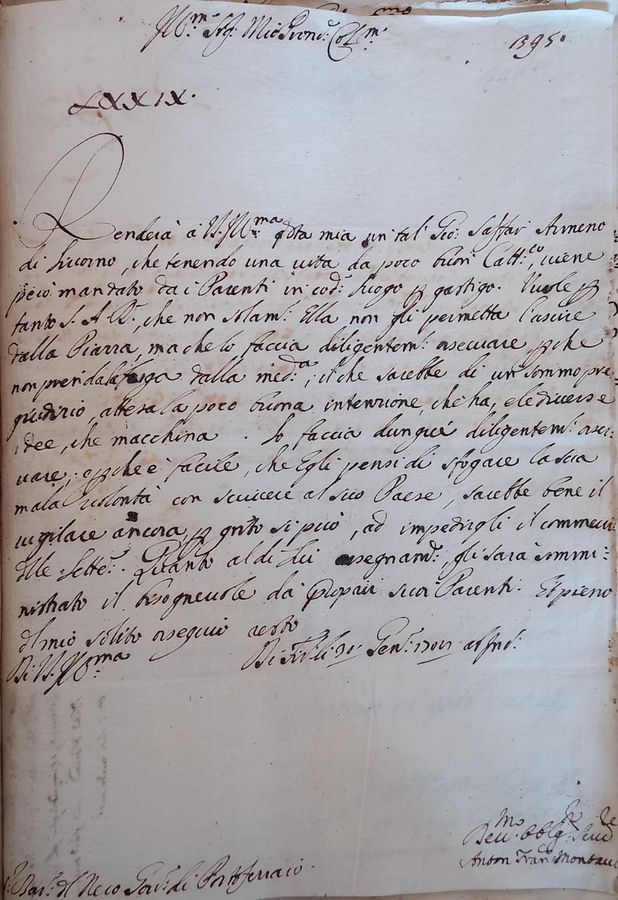 Ill:mo Sig: Mio Pron: Col:mo
1395.
LXXIX.
Renderà a V.S. Ill:ma qsta mia un tal Gio: Saffar Armeno
di Livorno, che tenendo una vita da poco buon Catt:co, viene
però mandato dai Parenti in cod: luogo p gastigo. Vuole p
tanto S. A. R., che non solam: Ella non gli permetta l'uscire
dalla Piazza, ma che lo faccia diligentem: osservare, p che
non prenda la fuga dalla med:a, il che sarebbe di un sommo pre=
giudizio, attesa la poco buona intenzione, che ha, e le diverse
idee, che macchina. Lo faccia dunque diligentem: osser=
vare; e p che è facile, che Egli pensi di sfogare la sua
mala volontà con scrivere al suo Paese, sarebbe bene il
vigilare ancora, p qnto si può, ad impedirgli il commercio
dlle lette:. Quanto al di Lui assegnam:, gli sarà sommi=
nistrato il bisognevole da proprj suoi Parenti. E pieno
dl mio solito ossequio resto
Di V.S. Ill:ma
Di Fir: li Gen:
Dev:mo Obblg: Serv:re
Anton Fran:
Bar: dl Nero Gov: di Portoferraio.